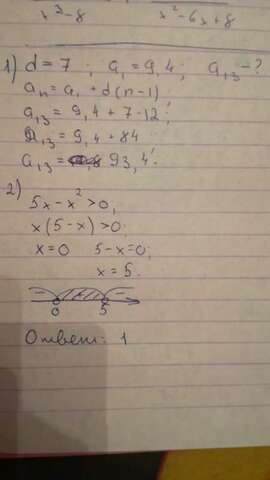 x³-8 x²-6x+8
1) d = 7 ; a₁ = 9,4 ; a₁₃ - ?
aₙ = a₁ + d(n-1)
a₁₃ = 9,4 + 7·12;
a₁₃ = 9,4 + 84
a₁₃ = 93,4.
2)
5x - x² > 0;
x(5-x) > 0
x = 0 5-x = 0;
x = 5.
- + -
0 5
Ответ: 1